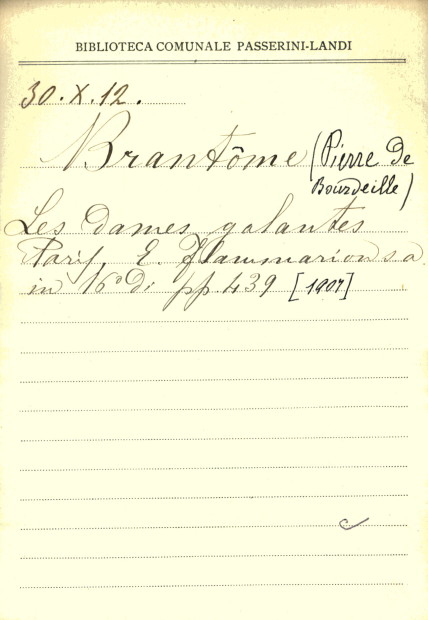 BIBLIOTECA COMUNALE PASSERINI-LANDI
30.X.12.
Brantôme (Pierre de
Bourdeille)
Les dames galantes
Paris, E. Flammarion s.a.
in 16° di pp. 439 [1907]